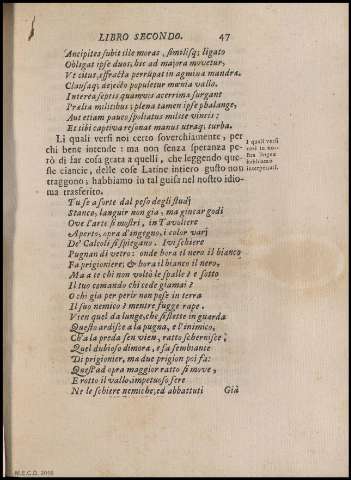 LIBRO SECONDO. 47
Ancipites subit ille moras, similisq; ligato
Obligat ipse duos, hic ad majora movetur,
Vt citus, effracta perrumpat in agmina mandra,
Clausaq; dejecto populetur mœnia vallo.
Interea septis quamvis acerrima surgant
Prælia militibus; plena tamen ipse phalange,
Aut etiam pauco spoliatus milite vincis:
Et tibi captiva resonat manus utraq; turba.
Li quali versi noi certo soverchiamente, per
chi bene intende: ma non senza speranza pe-
rò di far cosa grata a quelli, che leggendo que-
ste ciancie, delle cose Latine intiero gusto non
traggono; habbiamo in tal guisa nel nostro idio-
ma trasferito.
I quali versi
così in no-
stra lingua
habbiamo
interpretati.
Tu se a sorte dal peso degli studj
Stanco, languir non gia, ma giucar godi
Ove l'arte si mostri, in Tavoliere
Aperto, opra d'ingegno, i color varj
De' Calcoli si spiegano. Ivi schiere
Pugnan di vetro: onde hora il nero il bianco
Fa prigioniere; & hora il bianco il nero.
Ma a te chi non voltò le spalle? e sotto
Il tuo comando chi cede giamai?
O chi gia per perir non pose in terra
Il suo nemico? mentre fugge rape.
Vien quel da lunge, che si stette in guarda
Questo ardisce a la pugna, e l'inimico,
Ch'a la preda sen vien, ratto schernisce;
Quel dubioso dimora, e fa sembiante
Di prigionier, ma due prigion poi fa:
Quest' ad opra maggior ratto si move,
E rotto il vallo, impetuoso fere
Ne le schiere nemiche, ed abbattuti
Già
M.E.C.D. 2016